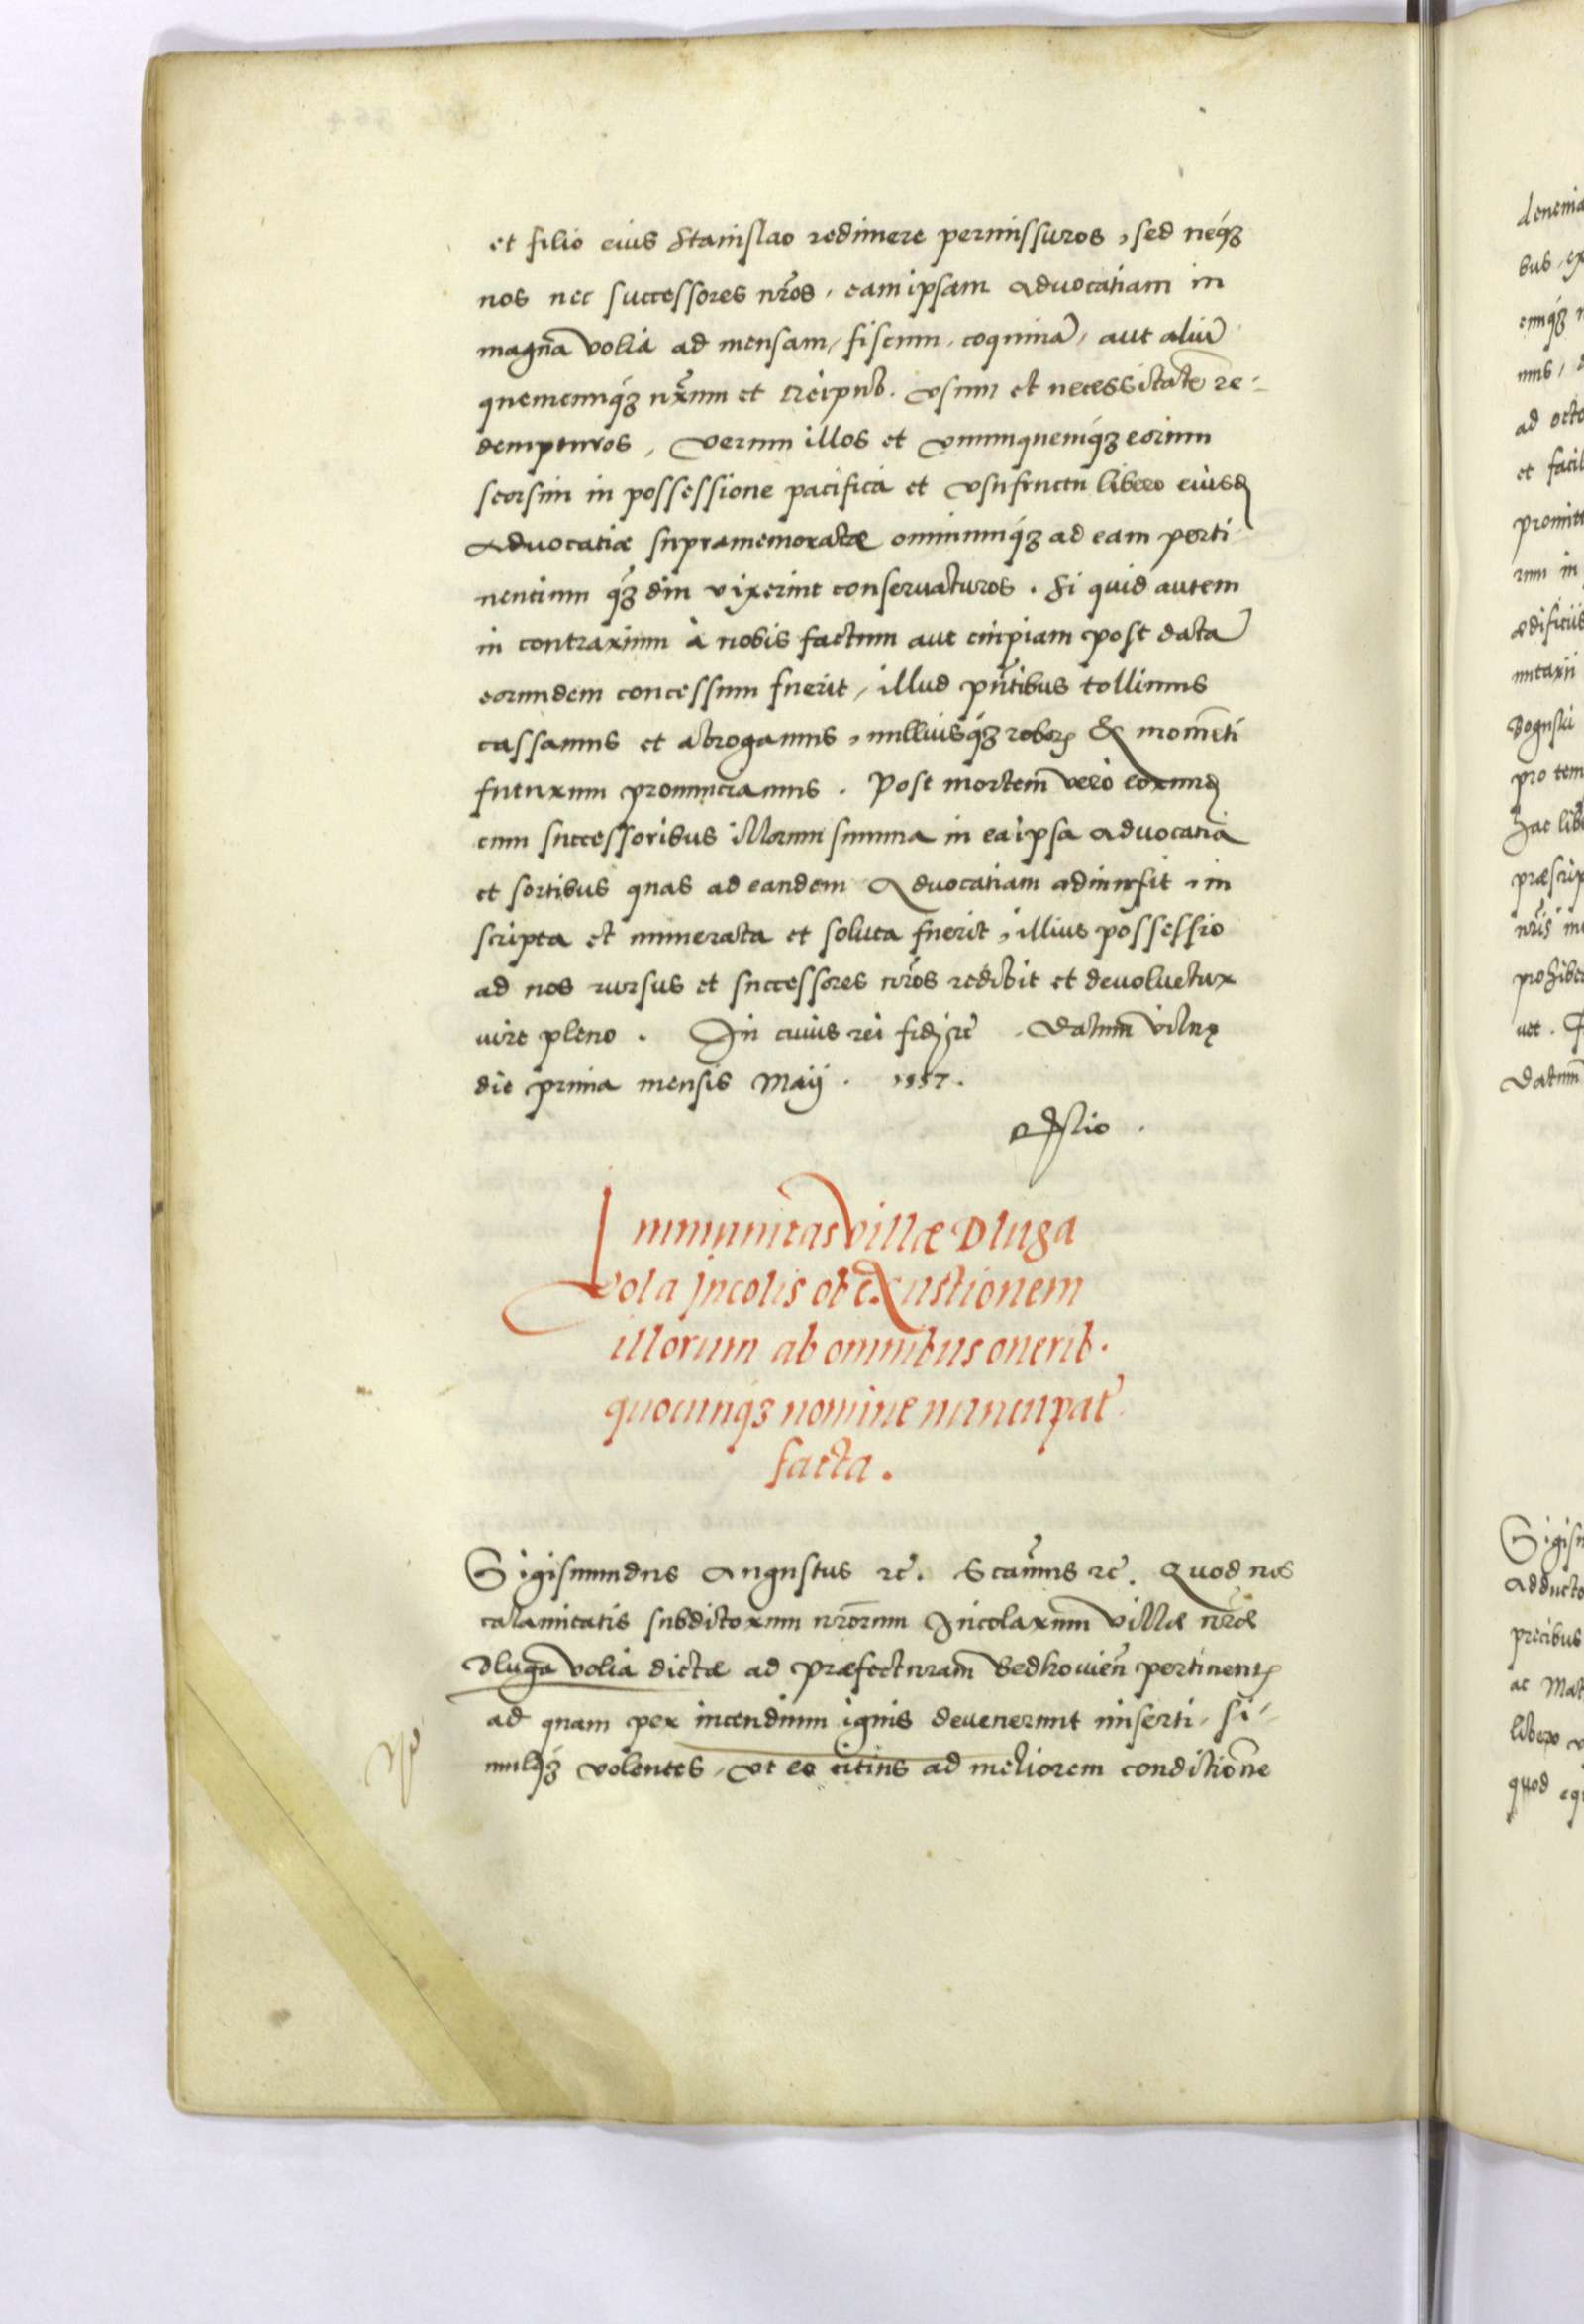 et filio eius Stanislao redimere permissuros, sed neq́ꝫ
nos nec successores nr̃os, eam ipsam Advocatiam in
magna volia ad mensam, fiscum, coquinã, aut aliũ
quemcunq́ꝫ nr̃um et Reipub. vsum et necessitatẽ re-
dempturos, Verum illos et vnumquemq́ꝫ eorum
seorsim in possessione pacifica et vsufructu libero eiusd
Advocatiæ supramemoratæ omniumq́ꝫ ad eam perti
nentium q̃ꝫ diu vixerint conservaturos. Si quid autem
in contrarium à nobis factum aut cuipiam post datã
eorundem concessum fuerit, illud pñtibus tollimus
cassamus et abrogamus, nulliusq́ꝫ robor & momẽti
futurum pronunciamus. Post mortem verò eorund
cum successoribus illorum summa in ea ipsa advocatia
et sortibus quas ad eandem Advocatiam adiunxit, in
scripta et numerata et soluta fuerit, illius possessio
ad nos rursus et successores nr̃os redibit et devoluetur
iure pleno. In cuius rei fid etc̃. Datum Vilnę
die prima mensis Maij. 1557.

Immunitas villæ Dluga
vola Incolis ob exustionem
illorum ab omnibus onerib.
quocunqꝫ nomine nuncupat̃
facta.
Sigismundus Augustus etc̃. Scam̃us etc̃. Quod nos
calamitatis subditorum nr̃orum Incolarum villæ nr̃æ
Dluga volia dictæ ad Præfecturam Redkovieñ pertinent
ad quam per incendium ignis devenerunt miserti, si-
mulq́ꝫ volentes, vt eo citius ad meliorem conditionẽ